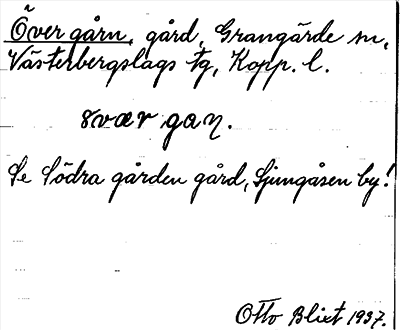 Övergårn, gård, Grangärde sn,
Västerbergslags tg, Kopp. l.
8vær gaɳ.
Se Södra gården gård, Ljungåsen by!
Otto Blixt 1937.